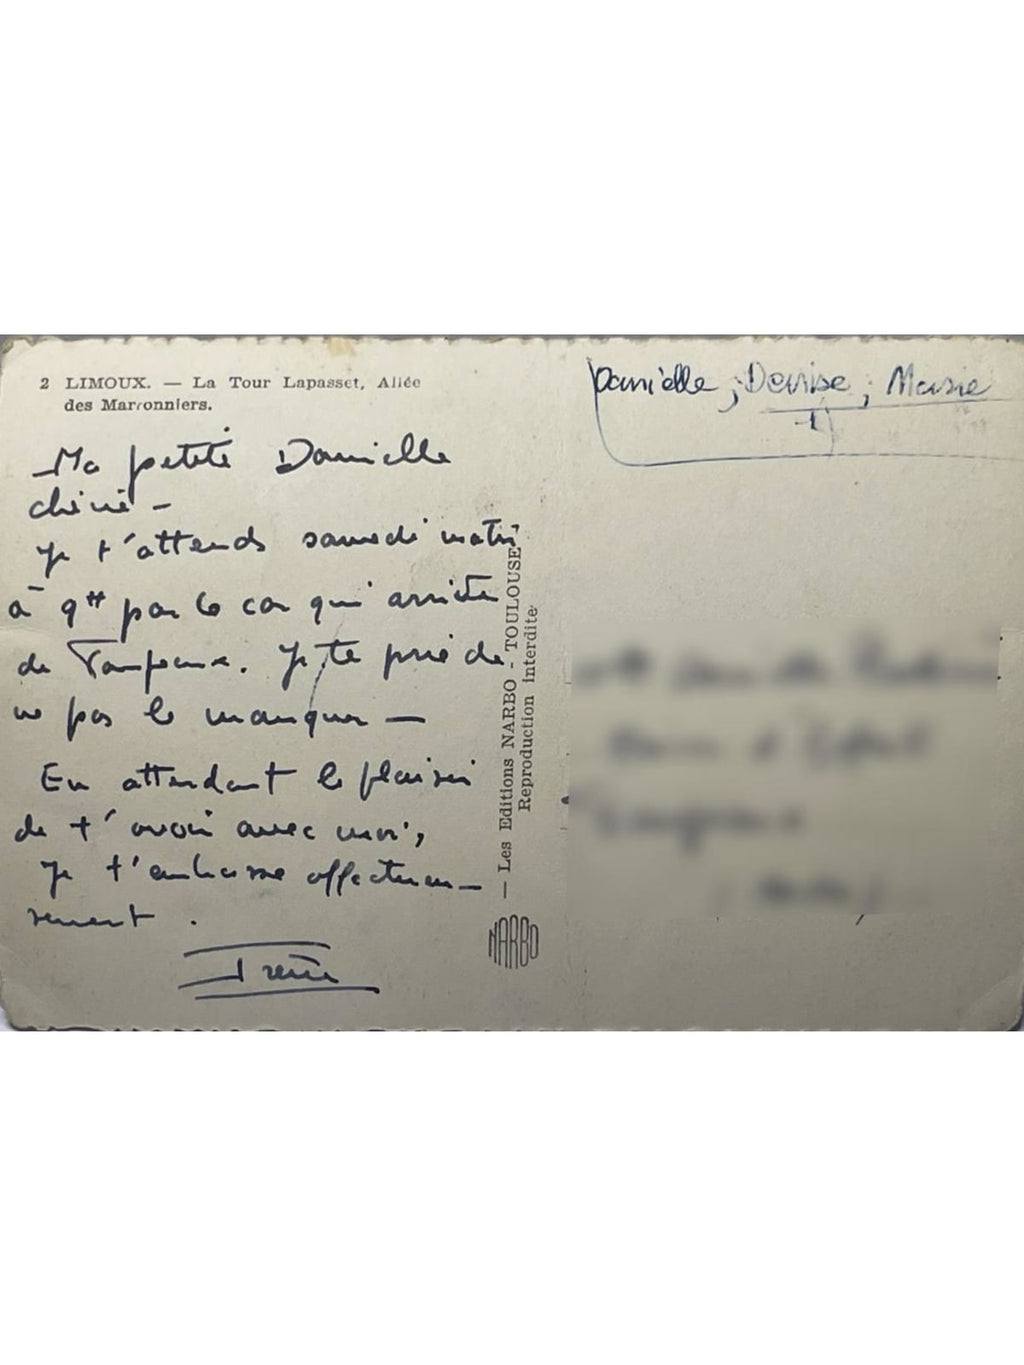 2 LIMOUX. — La Tour Lapasset, Allée
des Marronniers.
Ma petite Danielle
chérie —
Je t'attends samedi matin
à 9 H par le car qui arrive
de . Je te prie de
ne pas le manquer —
En attendant le plaisir
de t'avoir avec moi,
je t'embrasse affectueu—
sement .
Irène
— Les Editions NARBO - TOULOUSE
Reproduction interdite
NARBO
Danielle ; Denise ; Marie